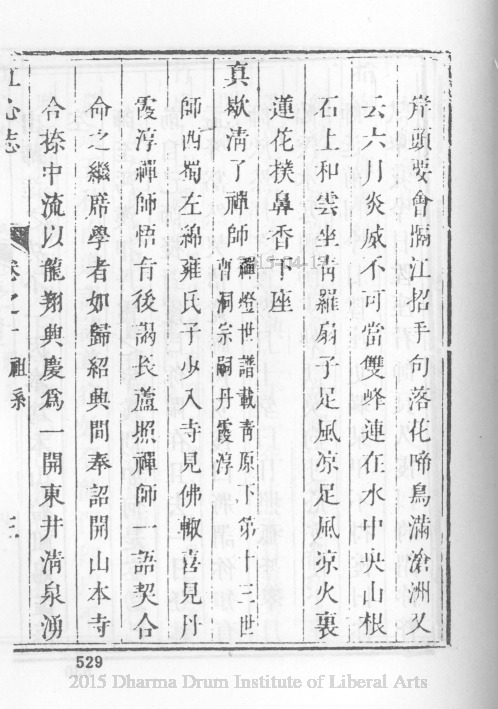 岸頭要會隔江招手句落花啼鳥滿滄洲又
云六月炎威不可當雙峰連在水中央山根
石上和雲坐靑羅扇子足風凉足風凉火裏
蓮花撲鼻香下座
真歇淸了禪師禪燈世譜載靑原下第十三世
曹洞宗嗣丹霞淳
師西蜀左綿雍氏子少入寺見佛輙喜見丹
霞淳禪師悟旨後謁長蘆照禪師一語契合
命之繼席學者如歸紹興間奉詔開山本寺
合捺中流以龍翔興慶爲一開東井淸泉湧
江心志
卷之一
祖系
三
529
2015-04-13
2015 Dharma Drum Institute of Liberal Arts